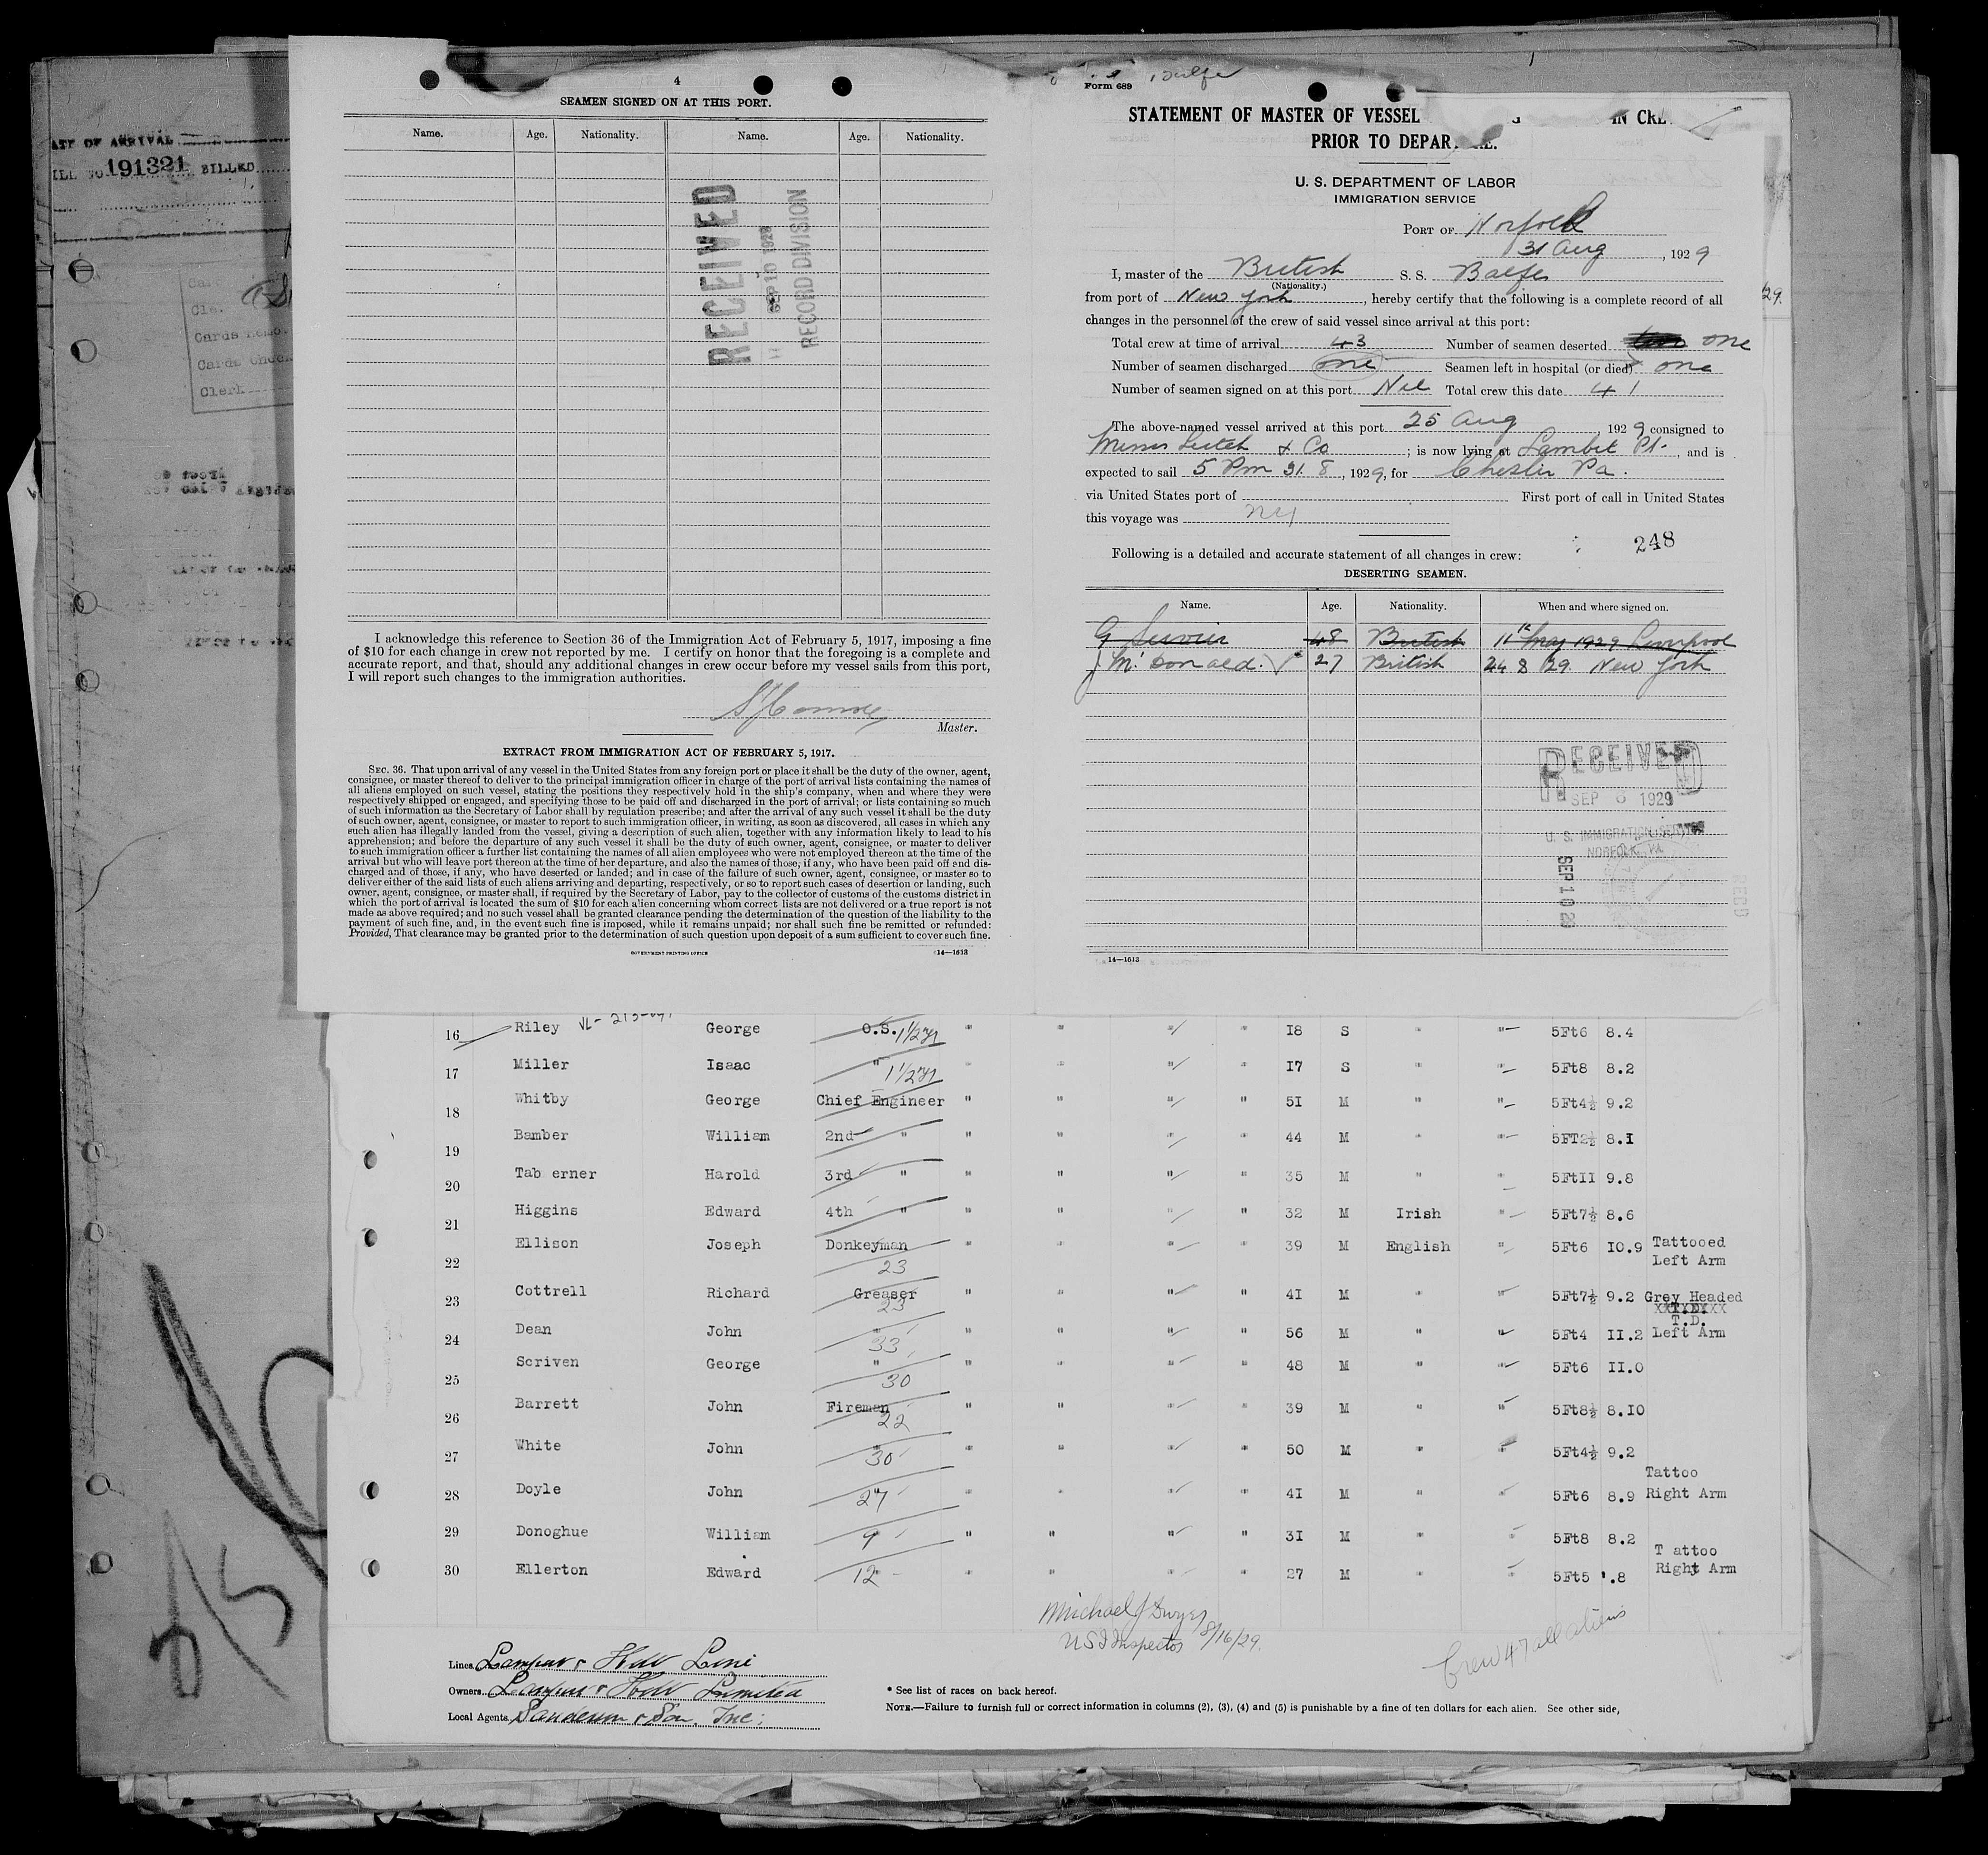 ATE OF ARRIVAL
ILL NO. 191321 BILLED
Cards Checke
Clerk
4
SEAMEN SIGNED ON AT THIS PORT.
Name. Age. Nationality. Name. Age. Nationality.
RECEIVED
RECORD DIVISION
I acknowledge this reference to Section 36 of the Immigration Act of February 5, 1917, imposing a fine
of $10 for each change in crew not reported by me. I certify on honor that the foregoing is a complete and
accurate report, and that, should any additional changes in crew occur before my vessel sails from this port,
I will report such changes to the immigration authorities.
Master.
EXTRACT FROM IMMIGRATION ACT OF FEBRUARY 5, 1917.
SEC. 36. That upon arrival of any vessel in the United States from any foreign port or place it shall be the duty of the owner, agent,
consignee, or master thereof to deliver to the principal immigration officer in charge of the port of arrival lists containing the names of
all aliens employed on such vessel, stating the positions they respectively hold in the ship's company, when and where they were
respectively shipped or engaged, and specifying those to be paid off and discharged in the port of arrival; or lists containing so much
of such information as the Secretary of Labor shall by regulation prescribe; and after the arrival of any such vessel it shall be the duty
of such owner, agent, consignee, or master to report to such immigration officer, in writing, as soon as discovered, all cases in which any
such alien has illegally landed from the vessel, giving a description of such alien, together with any information likely to lead to his
apprehension; and before the departure of any such vessel it shall be the duty of such owner, agent, consignee, or master to deliver
to such immigration officer a further list containing the names of all alien employees who were not employed thereon at the time of the
arrival but who will leave port thereon at the time of her departure, and also the names of those, if any, who have been paid off and dis-
charged and of those, if any, who have deserted or landed; and in case of the failure of such owner, agent, consignee, or master so to
deliver either of the said lists of such aliens arriving and departing, respectively, or so to report such cases of desertion or landing, such
owner, agent, consignee, or master shall, if required by the Secretary of Labor, pay to the collector of customs of the customs district in
which the port of arrival is located the sum of $10 for each alien concerning whom correct lists are not delivered or a true report is not
made as above required; and no such vessel shall be granted clearance pending the determination of the question of the liability to the
payment of such fine, and, in the event such fine is imposed, while it remains unpaid; nor shall such fine be remitted or refunded:
Provided, That clearance may be granted prior to the determination of such question upon deposit of a sum sufficient to cover such fine.
GOVERNMENT PRINTING OFFICE 14—1613
Balfe
Form 689
STATEMENT OF MASTER OF VESSEL G IN CRE
PRIOR TO DEPAR E.
U. S. DEPARTMENT OF LABOR
IMMIGRATION SERVICE
PORT OF Norfolk
31 Aug, 1929
I, master of the British S. S. Balfe
(Nationality.)
from port of New York, hereby certify that the following is a complete record of all
changes in the personnel of the crew of said vessel since arrival at this port:
Total crew at time of arrival 43 Number of seamen deserted two one
Number of seamen discharged one Seamen left in hospital (or died) one
Number of seamen signed on at this port Nil Total crew this date 41
The above-named vessel arrived at this port 25 Aug, 1929, consigned to
Messrs & Co; is now lying at Lambit Pt., and is
expected to sail 5 Pm 31. 8, 1929, for Chester Pa.
via United States port of First port of call in United States
this voyage was NY
248
Following is a detailed and accurate statement of all changes in crew:
DESERTING SEAMEN.
Name. Age. Nationality. When and where signed on.
G 48 British 11th May 1929 Liverpool
J McDonald. 27 British 24 8 29. New York
RECEIVED
SEP 6 1929
U. S. IMMIGRATION SERVICE
NORFOLK, VA.
SEP 10 29
RECD
14—1613
16 Riley George O.S. 1½ yr " " " " 18 S " " 5Ft6 8.4
17 Miller Isaac " 1½ yr " " " " 17 S " " 5Ft8 8.2
18 Whitby George Chief Engineer " " " " 51 M " " 5Ft4½ 9.2
19 Bamber William 2nd " " " " " 44 M " " 5FT2½ 8.1
20 Tab erner Harold 3rd " " " " " 35 M " " 5Ft11 9.8
21 Higgins Edward 4th " " " " " 32 M Irish " 5Ft7½ 8.6
22 Ellison Joseph Donkeyman 23 " " " " 39 M English " 5Ft6 10.9 Tattooed Left Arm
23 Cottrell Richard Greaser 23 " " " " 41 M " " 5Ft7½ 9.2 Grey Headed
24 Dean John " 33 " " " " 56 M " " 5Ft4 11.2 T.D. Left Arm
25 Scriven George " 30 " " " " 48 M " " 5Ft6 11.0
26 Barrett John Fireman 22 " " " " 39 M " " 5Ft8½ 8.10
27 White John " 30 " " " " 50 M " " 5Ft4½ 9.2
28 Doyle John " 27 " " " " 41 M " " 5Ft6 8.9 Tattoo Right Arm
29 Donoghue William " 9 " " " " 31 M " " 5Ft8 8.2
30 Ellerton Edward " 12 " " " " 27 M " " 5Ft5 .8 T attoo Right Arm
Michael J Dwyer
US Inspector 8/16/29.
Crew 47 all aliens
Lines Lamport & Holt Line
Owners Lamport & Holt Limited
Local Agents Sanderson & Son, Inc;
* See list of races on back hereof.
NOTE.—Failure to furnish full or correct information in columns (2), (3), (4) and (5) is punishable by a fine of ten dollars for each alien. See other side,